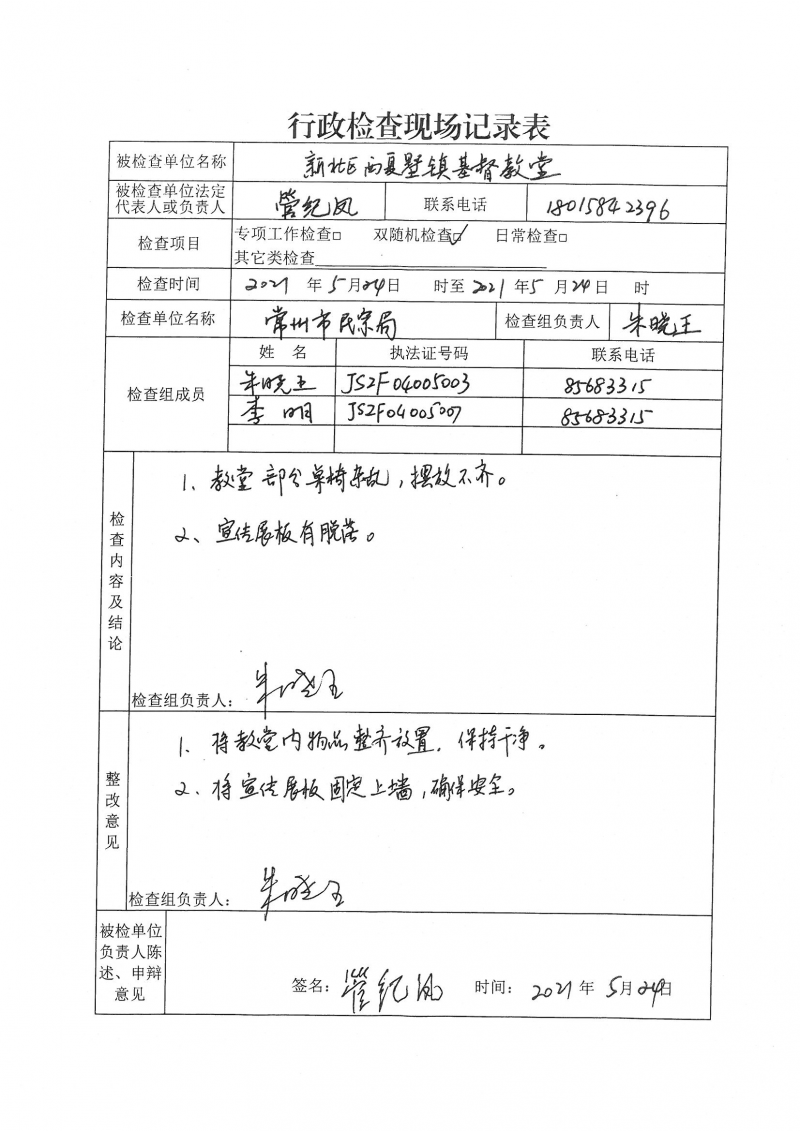 行政检查现场记录表
被检查单位名称 新北区西夏墅镇基督教堂
被检查单位法定代表人或负责人 管纪凤 联系电话 18015842396
检查项目 专项工作检查□ 双随机检查☑ 日常检查□
其它类检查
检查时间 2021 年 5 月 24 日 时至 2021 年 5 月 24 日 时
检查单位名称 常州市民宗局 检查组负责人 朱晓玉
检查组成员 姓 名 执法证号码 联系电话
朱晓玉 JS2F04005003 85683315
李明 JS2F04005007 85683315
检查内容及结论
1、教堂部分桌椅杂乱，摆放不齐。
2、宣传展板有脱落。
检查组负责人： 朱晓玉
整改意见
1、将教堂内物品整齐放置，保持干净。
2、将宣传展板固定上墙，确保安全。
检查组负责人： 朱晓玉
被检单位负责人陈述、申辩意见
签名： 管纪凤 时间： 2021 年 5 月 24 日